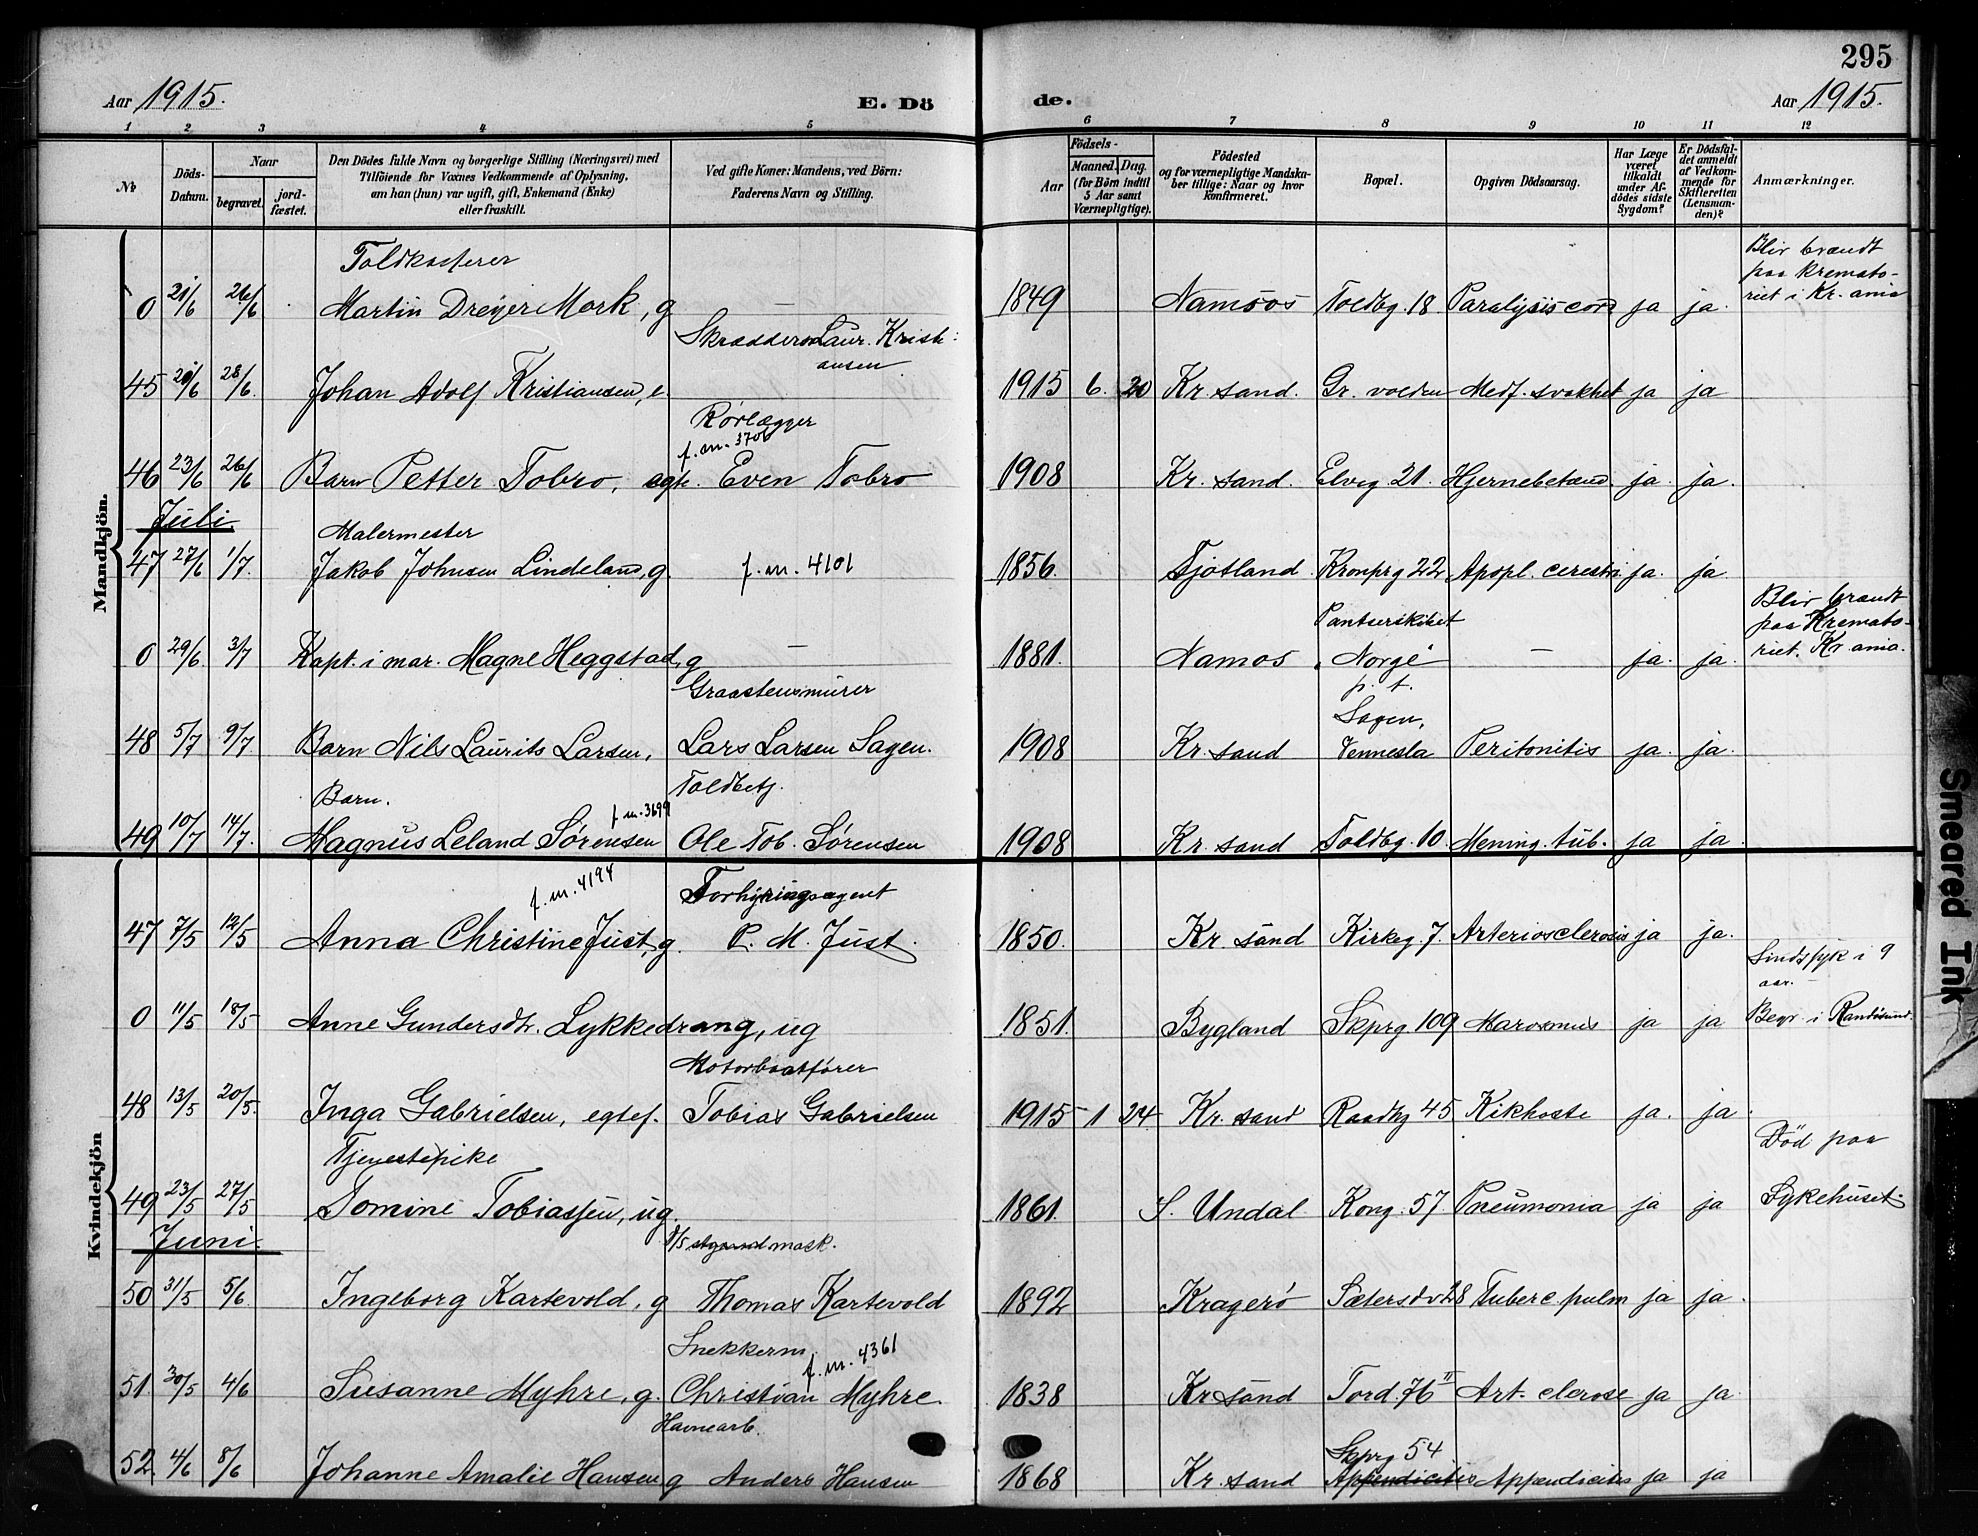 295
Aar 1915.
E. Dö
de.
Aar 1915.
1 2 3 4 5 6 7 8 9 10 11 12
№
Döds-
Datum.
Naar
begravet.
jord-
fæstet.
Den Dödes fulde Navn og borgerlige Stilling (Næringsvei) med
Tilföiende for Voxnes Vedkommende af Oplysning,
om han (hun) var ugift, gift, Enkemand (Enke)
eller fraskilt.
Ved gifte Koner: Mandens, ved Börn:
Faderens Navn og Stilling.
Födsels-
Aar
Maaned. Dag.
(for Börn indtil
5 Aar samt
Værnepligtige).
Födested
og for værnepligtige Mandska-
ber tillige: Naar og hvor
konfirmeret.
Bopæl.
Opgiven Dödsaarsag.
Har Læge
været
tilkaldt
under Af-
dödes sidste
Sygdom?
Er Dödsfal-
det anmeldt
af Vedkom-
mende for
Skifteretten
(Lensman-
den)?
Anmærkninger.
Mandkjön.
Toldkasserer
0 21/6 26/6 Martin Dreyer Mork, g — 1849 Namsos Toldbg. 18 Paralysis cord ja ja.
Blir brændt
paa kremato-
riet i Kr.ania
Skrædder Laur. Kristi-
ansen
45 20/6 28/6. Johan Adolf Kristiansen, e. 1915 6. 20 Kr. sand. Gr. volden Medf. svakhet ja ja
Rørlægger
f.m. 3706
46 23/6 26/6 Barn Petter Tobro, egte. Even Tobro 1908 Kr. sand. Elveg 21. Hjernebetænd. ja. ja.
Juli
Malermester
47 27/6 1/7. Jakob Johnsen Lindeland, g. f.m. 4101 1856. Fjotland Kronprg 22 Apopl. cerebri ja. ja.
Panserskibet
0 29/6 3/7 Kapt. i mar. Magne Heggstad, g — 1881. Namos „Norge“ — ja. ja.
Blir brændt
paa Kremato-
riet. Kr.ania.
Graastensmurer
p. t.
Sagen,
48 5/7 9/7 Barn Nils Laurits Larsen, Lars Larsen Sagen. 1908 Kr. sand Vennesla Peritonitis ja. ja.
Barn.
Toldbetj.
f.m. 3699
49 10/7 14/7. Magnus Leland Sørensen Ole Tob. Sørensen 1908 Kr. sand Toldbg. 10. Mening. tub. ja ja.
Kvindekjön
f.m. 4194
Forhyringsagent
47 7/5 12/5 Anna Christine Just, g P. M. Just. 1850. Kr sand Kirkeg 7. Arteriosclerosis ja ja.
Sindssyk i 9
aar.
0 11/5 18/5 Anne Gundersdtr. Lykkedrang, ug 1851. Bygland Skprg 109 Marasmus ja ja Begr. i Randøsund.
Motorbaatfører
48 13/5 20/5. Inga Gabrielsen, egtef. Tobias Gabrielsen 1915 1 24 Kr. sand Raadhg 45 Kikhoste ja. ja.
Tjenestepike
Död paa
49 23/5 27/5 Tomine Tobiassen, ug. 1861. S. Undal. Kong. 57. Pneumonia ja ja Sykehuset.
Juni.
mask.
50 31/5 5/6. Ingeborg Kartevold, g Thomas Kartevold 1892 Kragerö Sætersdv 28 Tuberc. pulm ja ja.
Snekkerm.
f.m. 4361
51. 30/5 4/6 Susanne Myhre, g. Christian Myhre. 1838 Kr sand Tord. 76 II Art. clerose ja ja.
Havnearb.
Skprg 54
52. 4/6 8/6 Johanne Amalie Hansen, g Anders Hansen 1868 Kr. sand Appendicitis Appendicitis ja ja
Smeared Ink